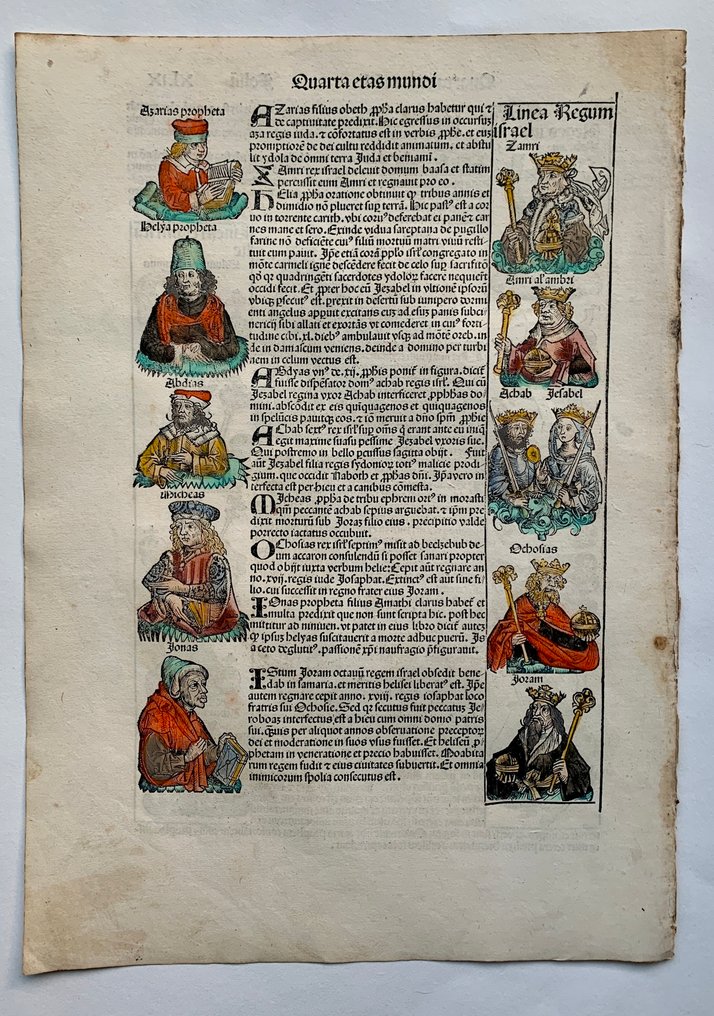 Quarta etas mundi
Azarias propheta
Helya propheta
Abdias
Micheas
Jonas
AZarias filius obeth ꝓph̄a clarus habetur qui ⁊
de captiuitate predixit. Hic egressus in occursuꝫ
aza regis iuda. ⁊ cōfortatus est in verbis ꝓphe. et euꝫ
promptiorē de dei cultu reddidit animatum. et abstu
lit ydola de omni terra Juda et beniami.
ZAmri rex israel deleuit domum baasa et statim
percussit eum Amri et regnauit pro eo.
HElia ꝓph̄a oratione obtinuit ꝙ tribus annis et
dimidio nō plueret sup terrā. Hic pastꝰ est a cor
uo in torrente carith. vbi coruꝰ deferebat ei panē ⁊ car
nes mane et sero. Exinde vidua sareptana de pugillo
farine nō deficiēte cuiꝰ filiū mortuū matri viuū resti
tuit eum pauit. Jpē etiā corā pplo isrl̄ congregato in
mōte carmeli igne descēdere fecit de celo sup sacrificiō
qd̄ ꝙ quadringēti sacerdotes ydoloꝝ facere nequiēt
occidi fecit. Et ꝓpter hoc cū Jezabel in vltionē ipsorū
vbiqꝫ ꝑsecuit est. ꝑrexit in desertū sub iunipero dormi
enti angelus apparuit excitans euꝫ ad esuꝫ panis subci
nericij sibi allati et exortās vt comederet in cuiꝰ forti-
tudine cibi .xl. diebꝰ ambulauit vsqꝫ ad mōtē oreb. in
de in damascum veniens. deinde a domino per turbi
nem in celum vectus est.
ABdyas vnꝰ de .xij. ꝓphis ponit̄ in figura. dicit̄
fuisse dispēsator domꝰ achab regis isrl̄. Qui cū
Jezabel regina vxor Achab interficeret ꝓphētas do
mini. abscōdit ex eis quīquagenos et quīquagenos
in speluncis pauitqꝫ eos. ⁊ iō meruit a dn̄o spm̄ ꝓphie
AChab sextꝰ rex isrl̄ sup om̄s q̄ erant ante eū iniq̄
egit maxime suasu pessime Jezabel vxoris sue.
Qui postremo in bello percussus sagitta obijt. Fuit
aūt Jezabel filia regis sydonioꝝ totiꝰ malicie prodi
gium. que occidit Naboth et ꝓph̄as dn̄i. Jpa vero in
terfecta est per hieu et a canibus cōmesta.
MJcheas ꝓph̄a de tribu ephreni oriꝰ in morasti
qm̄ peccantē achab sepius arguebat. ⁊ ipm̄ pre
dixit morturū sub Joraꝫ filio eius. precipitio valde
porrecto iactatus occubuit.
OChosias rex isrl̄ septimꝰ misit ad beelzebub de
um accaron consulendū si posset sanari propter
quod obijt iuxta verbum helie: Cepit aūt regnare an
no .xvij. regis iude Josaphat. Extinctꝰ est aūt sine fi-
lio. cui successit in regno frater eius Joram.
IOnas propheta filius Amathi clarus habet̄ et
multa predixit que non sunt scripta hic. post hec
mittitur ad niniuen. vt patet in eius libro dicit̄ autez
ꝙ ipsus helyas suscitauerit a morte adhuc puerū. Js
a ceto deglutitꝰ. passionē xp̄i naufragio p̄figurauit.
ISstum Joram octauū regem israel obsedit bene-
dab in samaria. et meritis helisei liberatꝰ est. Jpē
autem regnare cepit anno .xviij. regis iosaphat loco
fratris sui Ochosie. Sed qꝛ secutus fuit peccatuꝫ Je-
roboaꝫ interfectus est a hieu cum omni domo patris
sui. quis per aliquot annos obseruatione preceptoꝝ
dei et moderatione in suos vsus fuisset. Et heliseū ꝓ-
phetam in veneratione et precio habuisset. Moabita
rum regem fudit ⁊ eius ciuitates subuertit. Et omnia
inimicorum spolia consecutus est.
Linea Regum
israel
Zamri
Amri al' ambri
Achab Jesabel
Ochosias
Joram